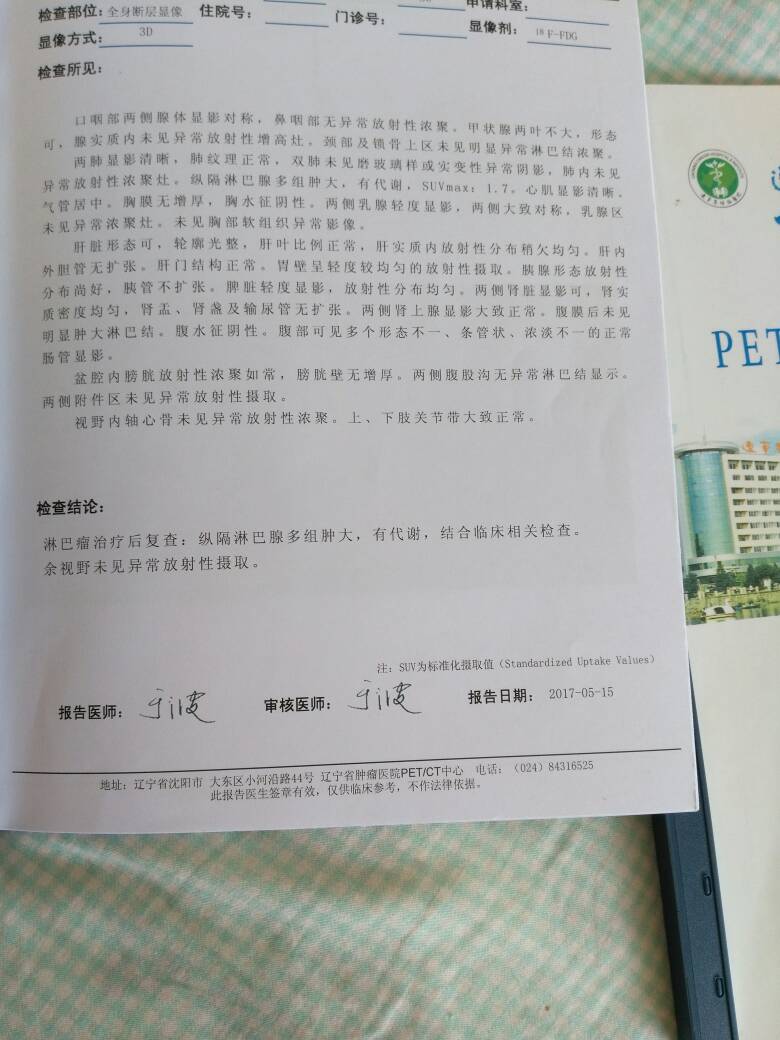 检查部位:全身断层显像 住院号: 门诊号: 申请科室:
显像方式: 3D 显像剂: ¹⁸F-FDG
检查所见:
口咽部两侧腺体显影对称，鼻咽部无异常放射性浓聚。甲状腺两叶不大，形态
可，腺实质内未见异常放射性增高灶。颈部及锁骨上区未见明显异常淋巴结浓聚。
两肺显影清晰，肺纹理正常，双肺未见磨玻璃样或实变性异常阴影，肺内未见
异常放射性浓聚灶。纵隔淋巴腺多组肿大，有代谢，SUVmax：1.7。心肌显影清晰。
气管居中。胸膜无增厚，胸水征阴性。两侧乳腺轻度显影，两侧大致对称，乳腺区
未见异常浓聚灶。未见胸部软组织异常影像。
肝脏形态可，轮廓光整，肝叶比例正常，肝实质内放射性分布稍欠均匀。肝内
外胆管无扩张。肝门结构正常。胃壁呈轻度较均匀的放射性摄取。胰腺形态放射性
分布尚好，胰管不扩张。脾脏轻度显影，放射性分布均匀。两侧肾脏显影可，肾实
质密度均匀，肾盂、肾盏及输尿管无扩张。两侧肾上腺显影大致正常。腹膜后未见
明显肿大淋巴结。腹水征阴性。腹部可见多个形态不一、条管状、浓淡不一的正常
肠管显影。
盆腔内膀胱放射性浓聚如常，膀胱壁无增厚。两侧腹股沟无异常淋巴结显示。
两侧附件区未见异常放射性摄取。
视野内轴心骨未见异常放射性浓聚。上、下肢关节带大致正常。
检查结论:
淋巴瘤治疗后复查：纵隔淋巴腺多组肿大，有代谢，结合临床相关检查。
余视野未见异常放射性摄取。
注：SUV为标准化摄取值（Standardized Uptake Values）
报告医师: 于波 审核医师: 于波 报告日期: 2017-05-15
地址：辽宁省沈阳市 大东区小河沿路44号 辽宁省肿瘤医院PET/CT中心 电话：（024）84316525
此报告医生签章有效，仅供临床参考，不作法律依据。
PET